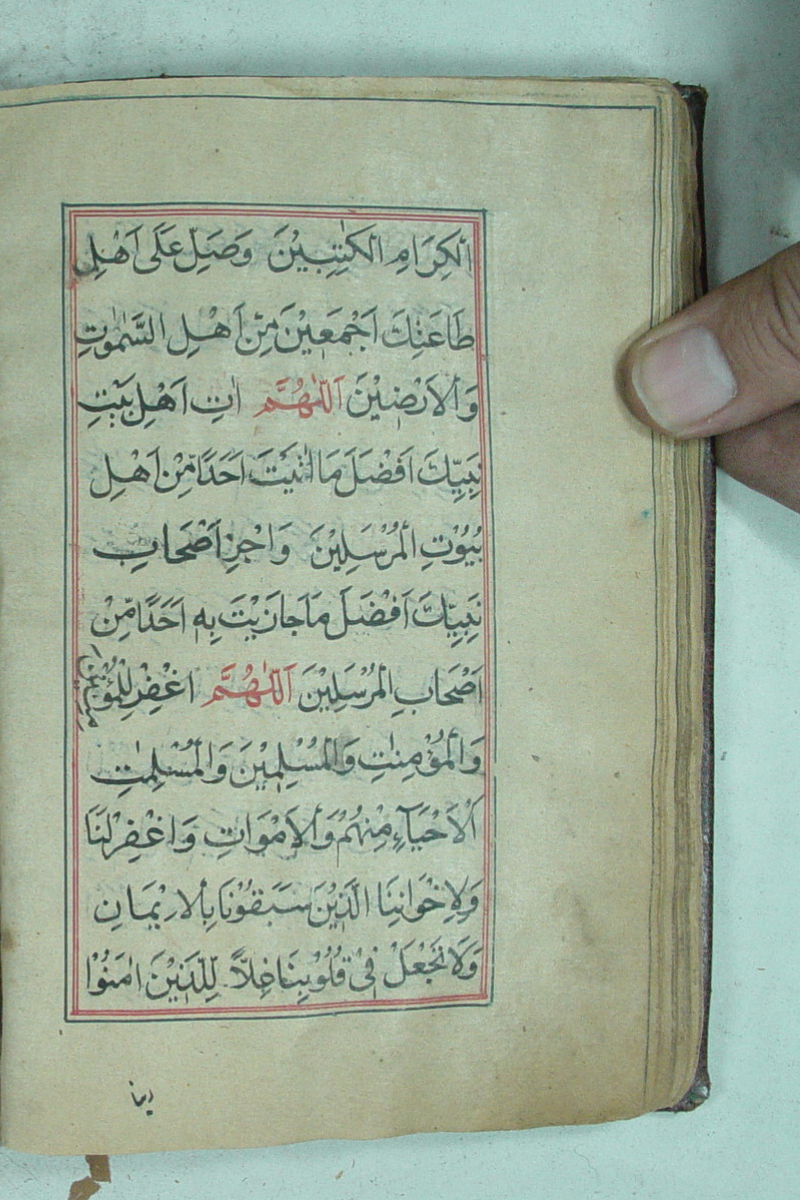 الْكِرَامِ الْكٰتِبِيْنَ وَصَلِّ عَلٰى اَهْلِ
طَاعَتِكَ اَجْمَعِيْنَ مِنْ اَهْلِ السَّمٰوٰتِ
وَالْاَرَضِيْنَ اَللّٰهُمَّ اٰتِ اَهْلَ بَيْتِ
نَبِيِّكَ اَفْضَلَ مَا اٰتَيْتَ اَحَدًا مِّنْ اَهْلِ
بُيُوْتِ الْمُرْسَلِيْنَ وَاجْزِ اَصْحَابِ
نَبِيِّكَ اَفْضَلَ مَا جَازَيْتَ بِهٖ اَحَدًا مِّنْ
اَصْحَابِ الْمُرْسَلِيْنَ اَللّٰهُمَّ اغْفِرْ لِلْمُؤْمِنِيْنَ
وَالْمُؤْمِنٰتِ وَالْمُسْلِمِيْنَ وَالْمُسْلِمٰتِ
اَلْاَحْيَآءِ مِنْهُمْ وَالْاَمْوَاتِ وَاغْفِرْ لَنَا
وَلِاِخْوَانِنَا الَّذِيْنَ سَبَقُوْنَا بِالْاِيْمَانِ
وَلَا تَجْعَلْ فِيْ قُلُوْبِنَا غِلًّا لِّلَّذِيْنَ اٰمَنُوْا
ربنا